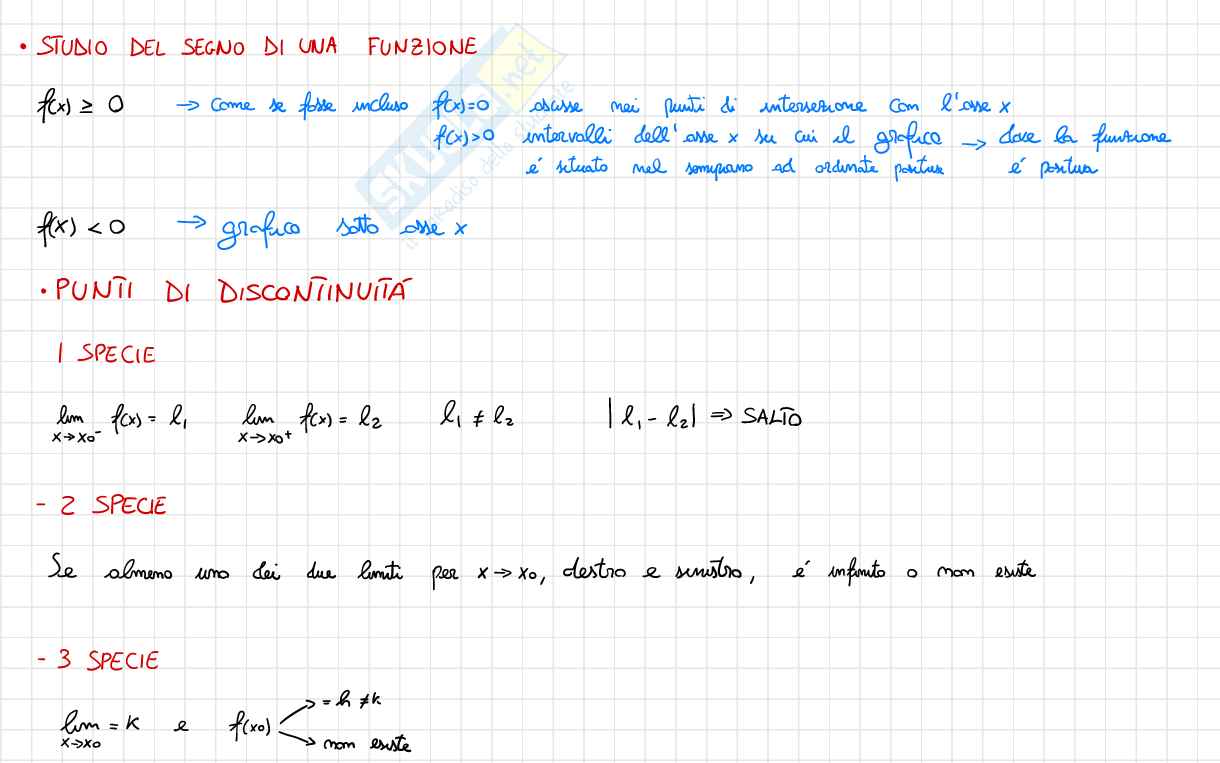 • STUDIO DEL SEGNO DI UNA FUNZIONE
f(x) ≥ 0 → Come se fosse incluso f(x)=0 ascisse nei punti di intersezione con l'asse x
f(x)>0 intervalli dell'asse x su cui il grafico → dove la funzione
é situato nel semipiano ad ordinate positive é positiva
f(x) < 0 → grafico sotto asse x
• PUNTI DI DISCONTINUITÁ
1 SPECIE
lim x→x0⁻ f(x) = l₁ lim x→x0⁺ f(x) = l₂ l₁ ≠ l₂ |l₁ - l₂| ⇒ SALTO
- 2 SPECIE
Se almeno uno dei due limiti per x → x0, destro e sinistro, é infinito o non esiste
- 3 SPECIE
lim x→x0 = k e f(x0) → = h ≠ k
→ non esiste
SKUOLA.net
il paradiso dello studente